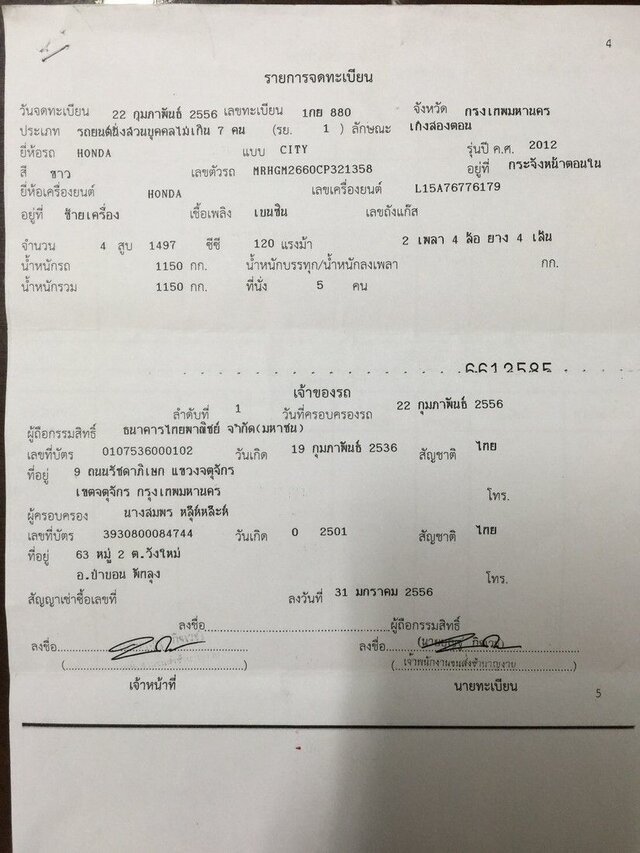 4
รายการจดทะเบียน
วันจดทะเบียน 22 กุมภาพันธ์ 2556 เลขทะเบียน 1กย 880 จังหวัด กรุงเทพมหานคร
ประเภท รถยนต์นั่งส่วนบุคคลไม่เกิน 7 คน (รย. 1 ) ลักษณะ เก๋งสองตอน
ยี่ห้อรถ HONDA แบบ CITY รุ่นปี ค.ศ. 2012
สี ขาว เลขตัวรถ MRHGM2660CP321358 อยู่ที่ กระจังหน้าตอนใน
ยี่ห้อเครื่องยนต์ HONDA เลขเครื่องยนต์ L15A76776179
อยู่ที่ ซ้ายเครื่อง เชื้อเพลิง เบนซิน เลขถังแก๊ส
จำนวน 4 สูบ 1497 ซีซี 120 แรงม้า 2 เพลา 4 ล้อ ยาง 4 เส้น
น้ำหนักรถ 1150 กก. น้ำหนักบรรทุก/น้ำหนักลงเพลา กก.
น้ำหนักรวม 1150 กก. ที่นั่ง 5 คน
6613585
เจ้าของรถ
ลำดับที่ 1 วันที่ครอบครองรถ 22 กุมภาพันธ์ 2556
ผู้ถือกรรมสิทธิ์ ธนาคารไทยพาณิชย์ จำกัด(มหาชน)
เลขที่บัตร 0107536000102 วันเกิด 19 กุมภาพันธ์ 2536 สัญชาติ ไทย
ที่อยู่ 9 ถนนรัชดาภิเษก แขวงจตุจักร
เขตจตุจักร กรุงเทพมหานคร โทร.
ผู้ครอบครอง นางสมพร หลุ๊ดหล๊ะ
เลขที่บัตร 3930800084744 วันเกิด 0 2501 สัญชาติ ไทย
ที่อยู่ 63 หมู่ 2 ต.วังใหม่
อ.ป่าบอน พัทลุง โทร.
สัญญาเช่าซื้อเลขที่ ลงวันที่ 31 มกราคม 2556
ลงชื่อ ผู้ถือกรรมสิทธิ์
ลงชื่อ ลงชื่อ
( ) (เจ้าพนักงานขนส่งชำนาญงาน)
เจ้าหน้าที่ นายทะเบียน
5